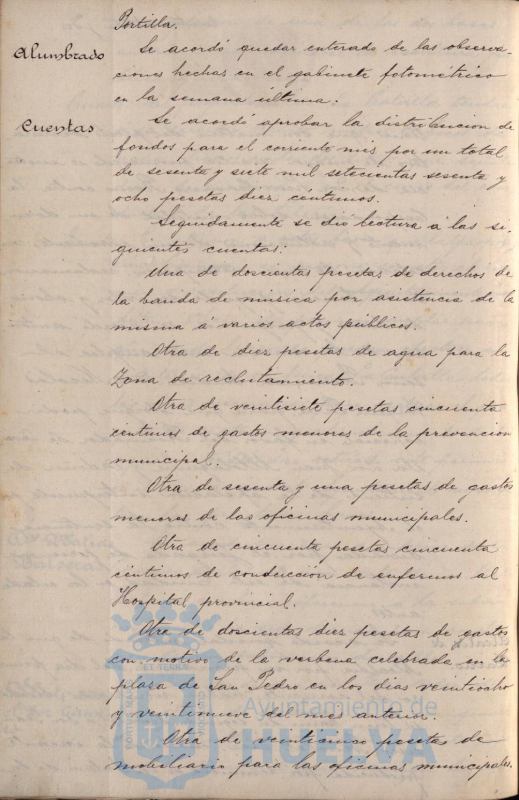 Portilla.
Alumbrado
Se acordó quedar enterado de las observa-
ciones hechas en el gabinete fotométrico
en la semana última.
Cuentas
Se acordó aprobar la distribucion de
fondos para el corriente mes por un total
de sesenta y siete mil setecientas sesenta y
ocho pesetas diez céntimos.
Seguidamente se dió lectura á las si-
guientes cuentas:
Una de doscientas pesetas de derechos de
la banda de música por asistencia de la
misma á varios actos públicos.
Otra de diez pesetas de agua para la
Zona de reclutamiento.
Otra de veintisiete pesetas cincuenta
centimos de gastos menores de la prevencion
municipal.
Otra de sesenta y una pesetas de gastos
menores de las oficinas municipales.
Otra de cincuenta pesetas cincuenta
céntimos de conducción de enfermos al
Hospital provincial.
Otra de doscientas diez pesetas de gastos
con motivo de la verbena celebrada en la
plaza de San Pedro en los dias veintiocho
y veintinueve del mes anterior.
Otra de veinticinco pesetas de
mobiliario para las oficinas municipales.
Ayuntamiento de
HUELVA